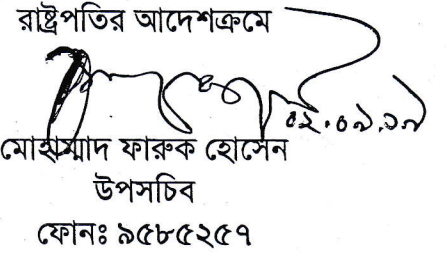 রাষ্ট্রপতির আদেশক্রমে
মোহাম্মাদ ফারুক হোসেন
উপসচিব
ফোনঃ ৯৫৮৫২৫৭